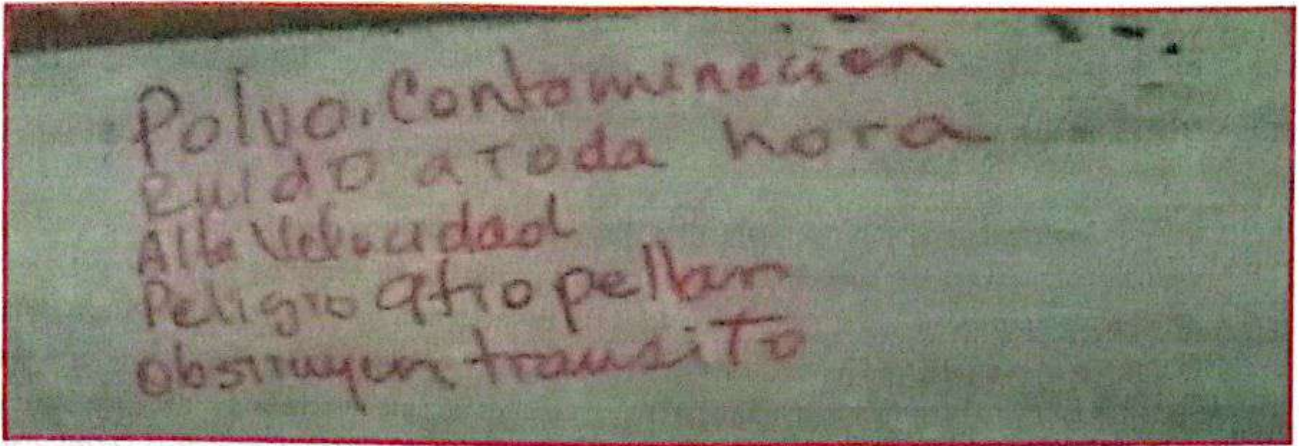 Polvo. Contaminacion
Ruido a Toda hora
Alta Velocidad
Peligro atropellan
obstruyen transiTo